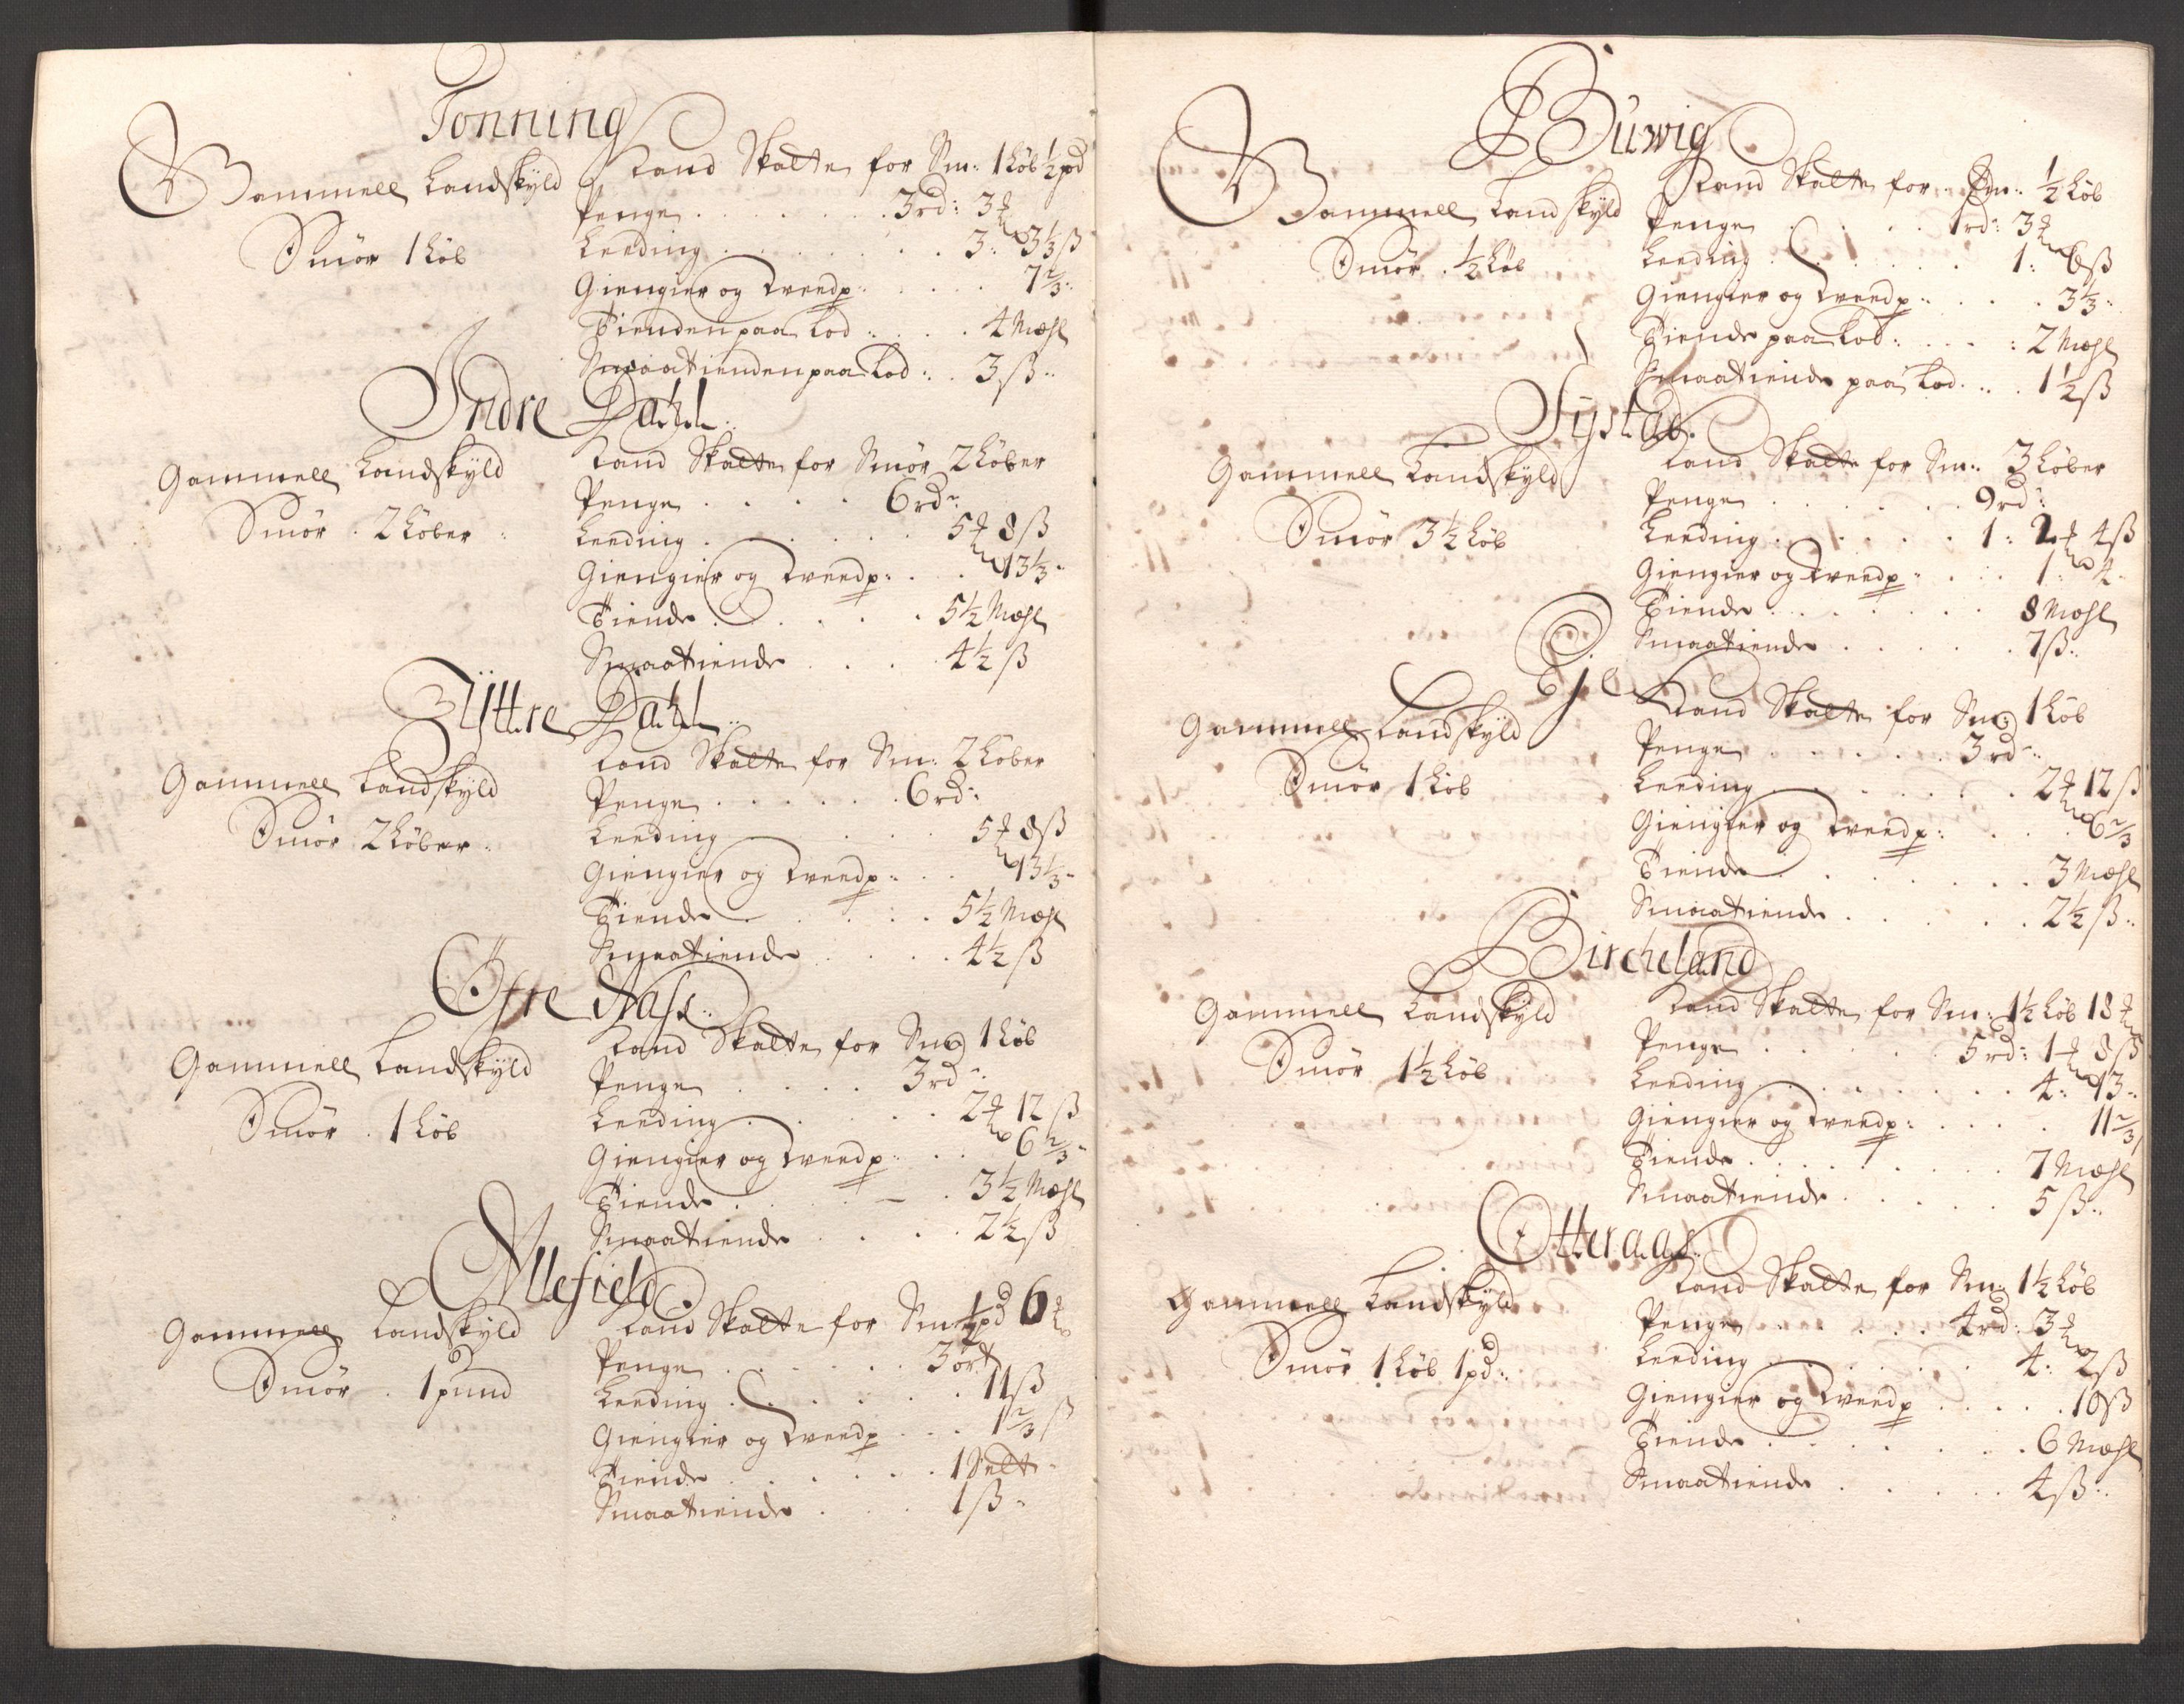 Tonning
Gammell Landskyld
Smör 1 Löb
Land Skatten for Sm: 1 Löb ½ pd
Penge . . . 3 rd: 3 ₰
Leeding . . . 3: 3⅓ ß
Giengier og Kreedp: . . . 7⅔:
Tienden paa Kod . . . 4 Mæhl
Smaatienden paa Kod: . 3 ß:
Indre Dahl:
Gammell Landskyld
Smör . 2 Löber
Land Skatten for Smör 2 Löber
Penge . . . 6 rd:
Leeding . . . 5 ₰ 8 ß
Giengier og Kreedp: . . 13⅓
Tiende . . . 5½ Mæhl
Smaatiende . . . 4½ ß
Yttre Dahl:
Gammell Landskyld
Smör 2 Löber
Land Skatten for Sm: 2 Löber
Penge . . . 6 rd:
Leeding . . . 5 ₰ 8 ß
Giengier og Kreedp: . . 13⅓
Tiende . . . 5½ Mæhl
Smaatiende . . . 4½ ß
Öfre Aase:
Gammell Landskyld
Smör . 1 Löb
Land Skatten for Sm: 1 Löb
Penge . . . 3 rd:
Leeding . . . 2 ₰ 12 ß
Giengier og Kreedp: . . 6⅔
Tiende . . . 3½ Mæhl
Smaatiende . . . 2½ ß
Ullefield
Gammell Landskyld
Smör . 1 pund
Land Skatte for Sm: ½ pd 6 ₰
Penge . . . 3 ort
Leeding . . . 11 ß
Giengier og Kreedp . . . 1⅔ ß
Tiende . . . 1 Selt
Smaatiende . . . 1 ß
Buwig
Gammell Landskyld
Smör . ½ Löb
Land Skatte for Sm: ½ Löb
Penge . . . 1 rd: 3 ₰
Leeding . . . 1: 6 ß
Giengier og Kreedp: . . . 3⅓:
Tiende paa Kod: . . . 2 Mæhl
Smaatiende paa Kod . . . 1½ ß
Systad
Gammell Landskyld
Smör 3½ Löb
Land Skatte for Sm: 3 Löber
Penge . . . 9 rd:
Leeding . . . 1: 2 ₰ 4 ß
Giengier og Kreedp . . . 1: 4
Tiende . . . 8 Mæhl
Smaatiende . . . 7 ß:
Eje
Gammell Landskyld
Smör 1 Löb
Land Skatte for Sm: 1 Löb
Penge . . . 3 rd:
Leeding . . . 2 ₰ 12 ß
Giengier og Kreedp: . . . 6⅔
Tiende . . . 3 Mæhl
Smaatiende . . . 2½ ß:
Bircheland
Gammell Landskyld
Smör 1½ Löb
Land Skatte for Sm: 1½ Löb 18 ₰
Penge . . . 5 rd: 1 ₰ 8 ß
Leeding . . . 4: 13:
Giengier og Kreedp: . . . 11⅔
Tiende . . . 7 Mæhl
Smaatiende . . . 5 ß:
Otteraae:
Gammell Landskyld
Smör 1 Löb 1 pd:
Land Skatte for Sm: 1½ Löb
Penge . . . 4 rd: 3 ₰
Leeding . . . 4: 2 ß
Giengier og Kreedp . . . 10 ß
Tiende . . . 6 Mæhl
Smaatiende . . . 4 ß: